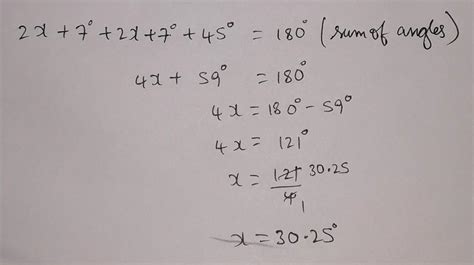 2x + 7° + 2x + 7° + 45° = 180° (sum of angles)
4x + 59° = 180°
4x = 180° - 59°
4x = 121°
x = 121/4 30.25
1
x = 30.25°